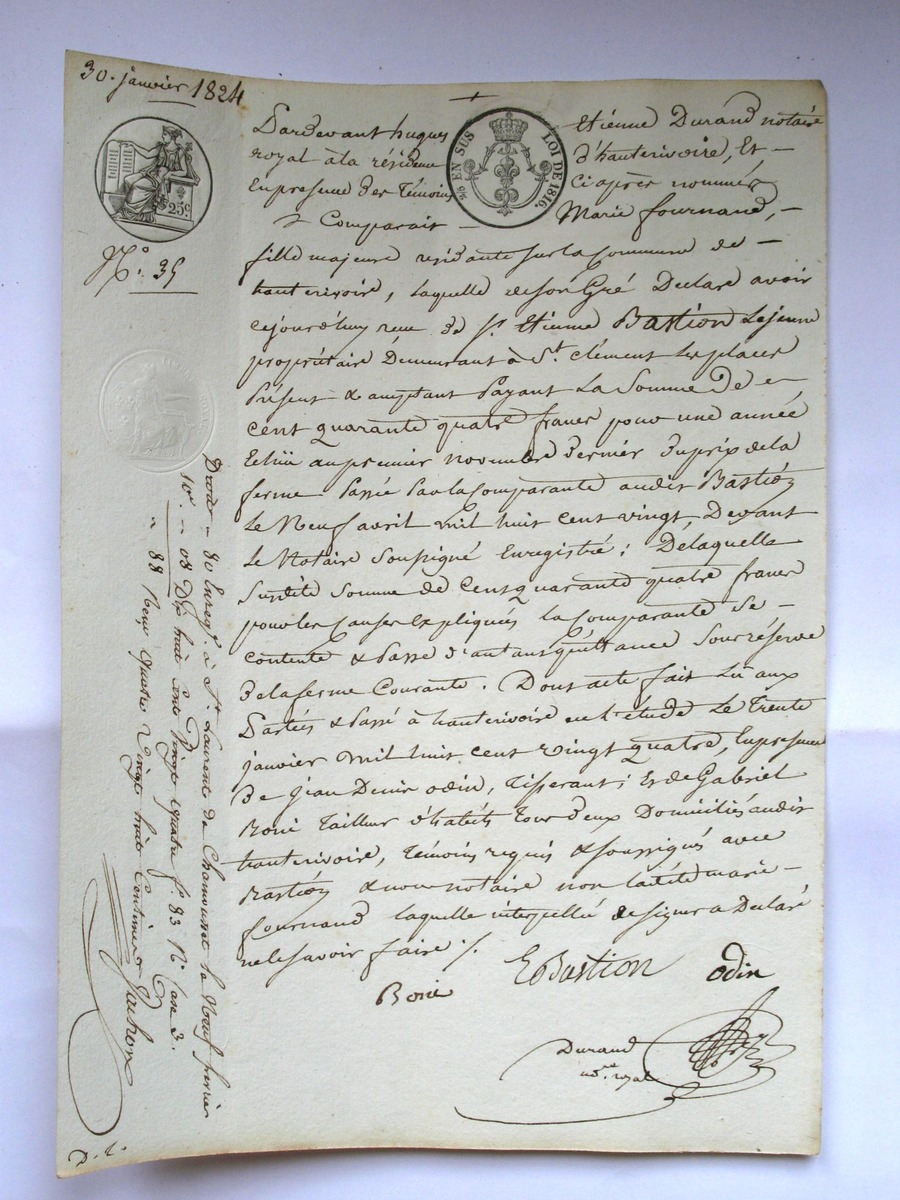 30. janvier 1824
25c
N.° 35
EN SUS LOI DE 1816.
Pardevant hugues Etienne Durand notaire
royal à la résidence d'hauterivoire, Et
En presence des Témoins Ci après nommés
Comparait Marie fournand,
fille majeure residante sur la Commune de
hauterivoire, laquelle de son Gré Declare avoir
cejourd'huy reçu de Sr. Etienne Bastion Lejeune
propriétaire Demeurant à St. Clément Les places
Présent & acceptant Payant La Somme De
cent quarante quatre francs pour une année
Echüe au premier novembre Dernier Du prix de la
ferme Passée Par la Comparante audit Bastion
Le Neuf avril Mil huit cent vingt, Devant
Le Notaire Soussigné Enregistré; De laquelle
Susdite Somme de Cent quarante quatre francs
pour les Causes Expliquées la Comparante Se
Contente & Passe d'autant quittance Sous réserve
De la ferme Courante. Dont acte fait Lû aux
Parties & Passé à hauterivoire en l'étude Le Trente
janvier Mil huit cent vingt quatre, En presence
De jean Denis odin, Tisserant; Et de Gabriel
Boné Tailleur d'habits Tous deux Domiciliés audit
hauterivoire, Témoins requis & soussignés avec
Bastion & nous notaire non la dité marie
fournand laquelle interpellée de signer a Declaré
ne le savoir faire ./.
Boné EBastion odin
Durand
nore. royal
Droits 80 Enregé. à St. Laurent de Chamousset le Neuf fevrier
10e. 08 Dix huit Cent Vingt quatre f. 83 Rc. Case 3.
88 Reçu quatre Vingt huit Centimes
D. C.